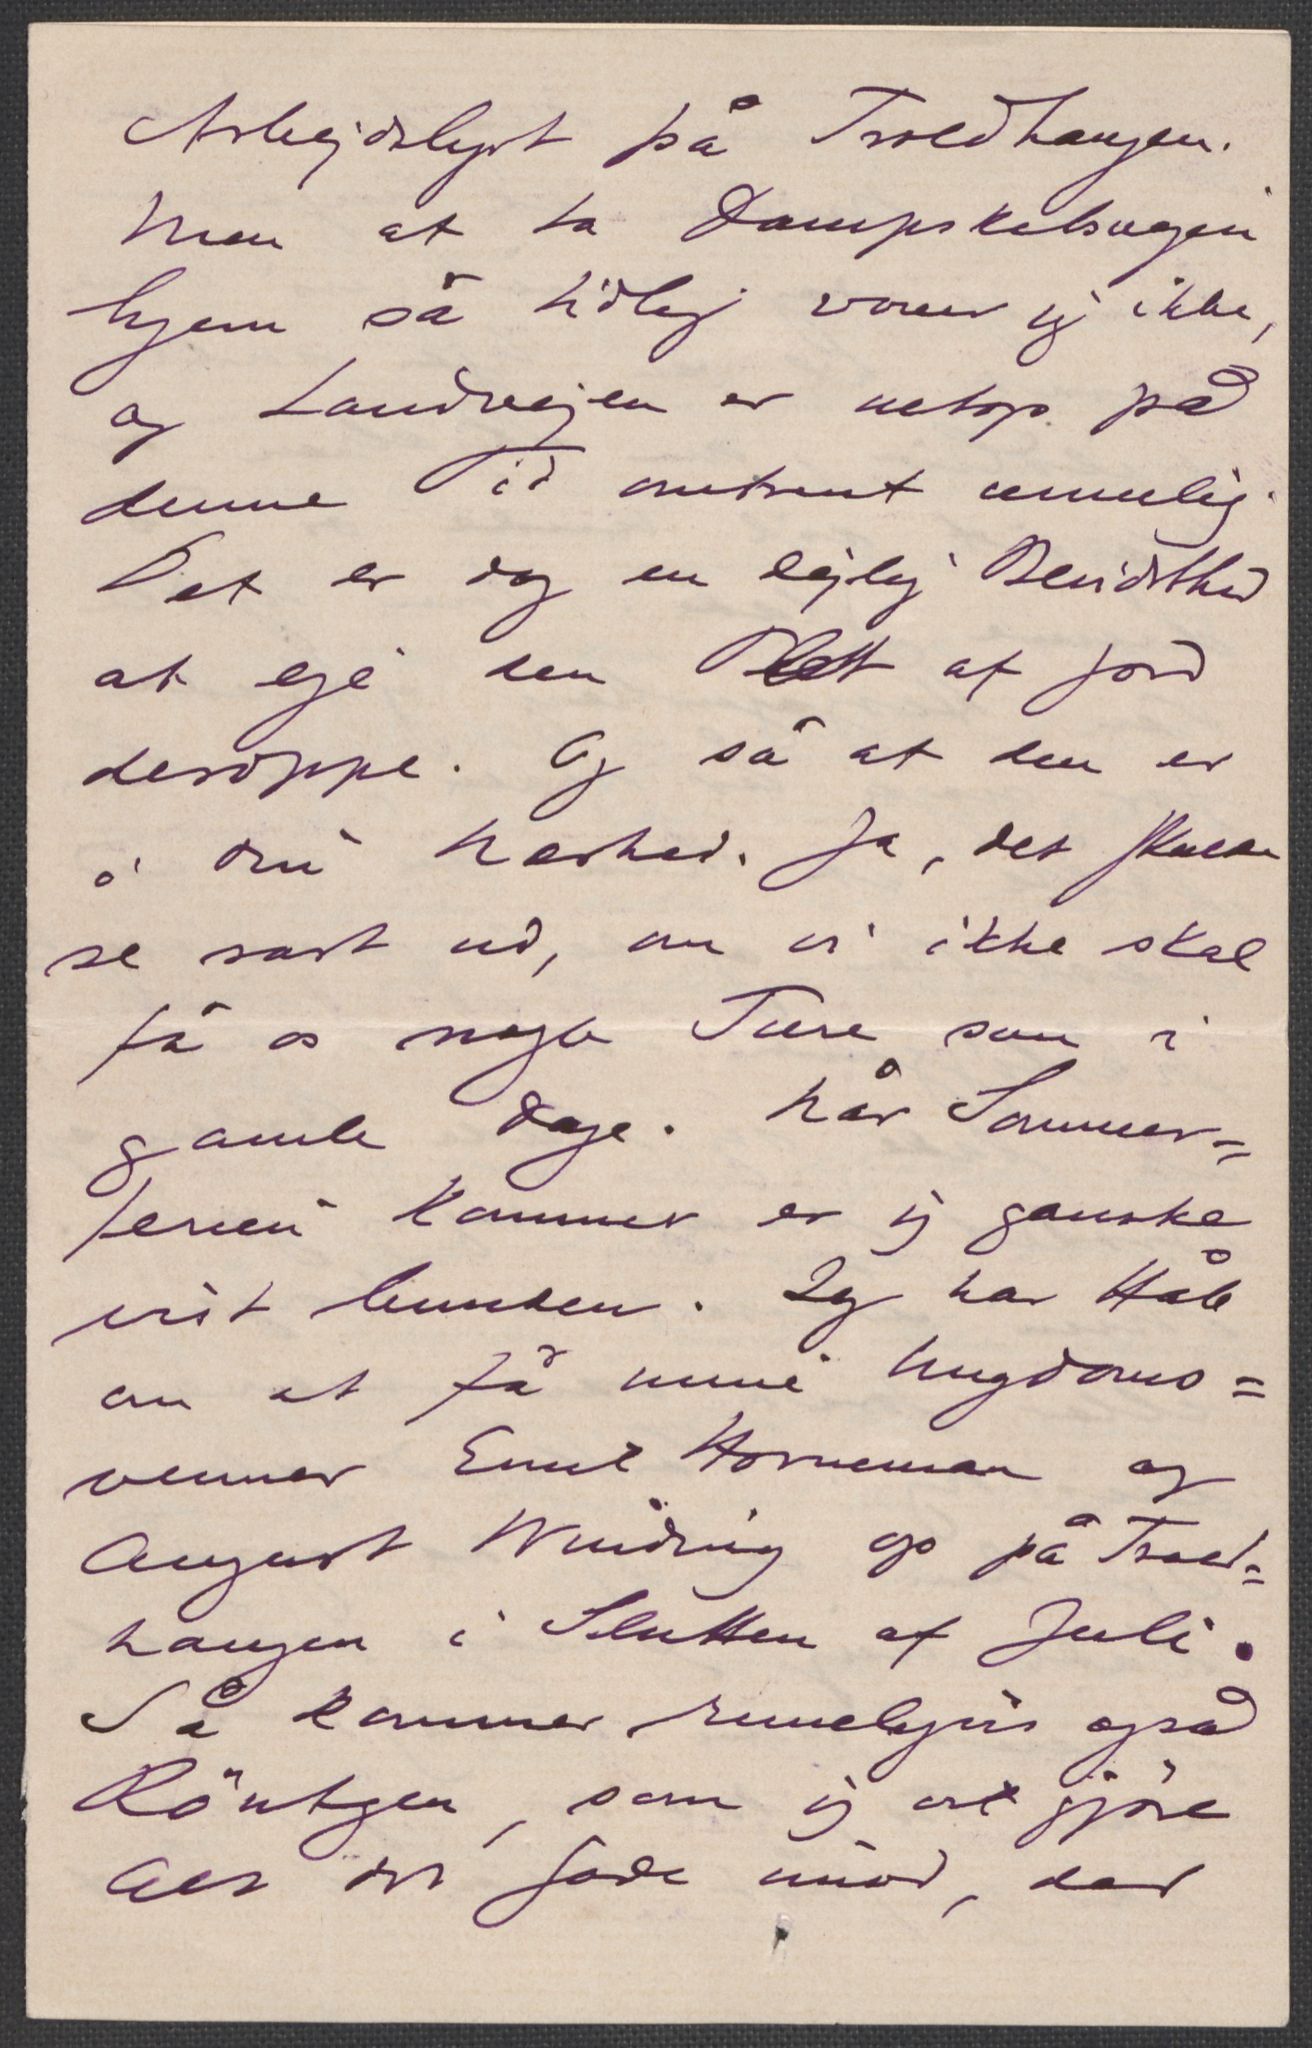 Arbejdslyst på Troldhaugen.
Men at ta Dampskibsvejen
hjem så tidlig vover jeg ikke,
og Landvejen er netop på
denne Tid omtrent umulig.
Det er dog en dejlig Bevidsthed
at eje den Plett af Jord
deroppe. Og så at den er
i din Nærhed. Ja, det skulde
se rart ud, om vi ikke skal
få os nogle Ture som i
gamle Dage. Når Sommer=
ferien kommer er jeg ganske
vist bunden. Jeg har Håb
om at få mine Ungdoms=
venner Emil Horneman og
August Winding op på Trold=
haugen i Slutten af Juli.
Så kommer rimeligvis også
Röntgen, som jeg vil gjöre
Alt det Gode imod, der